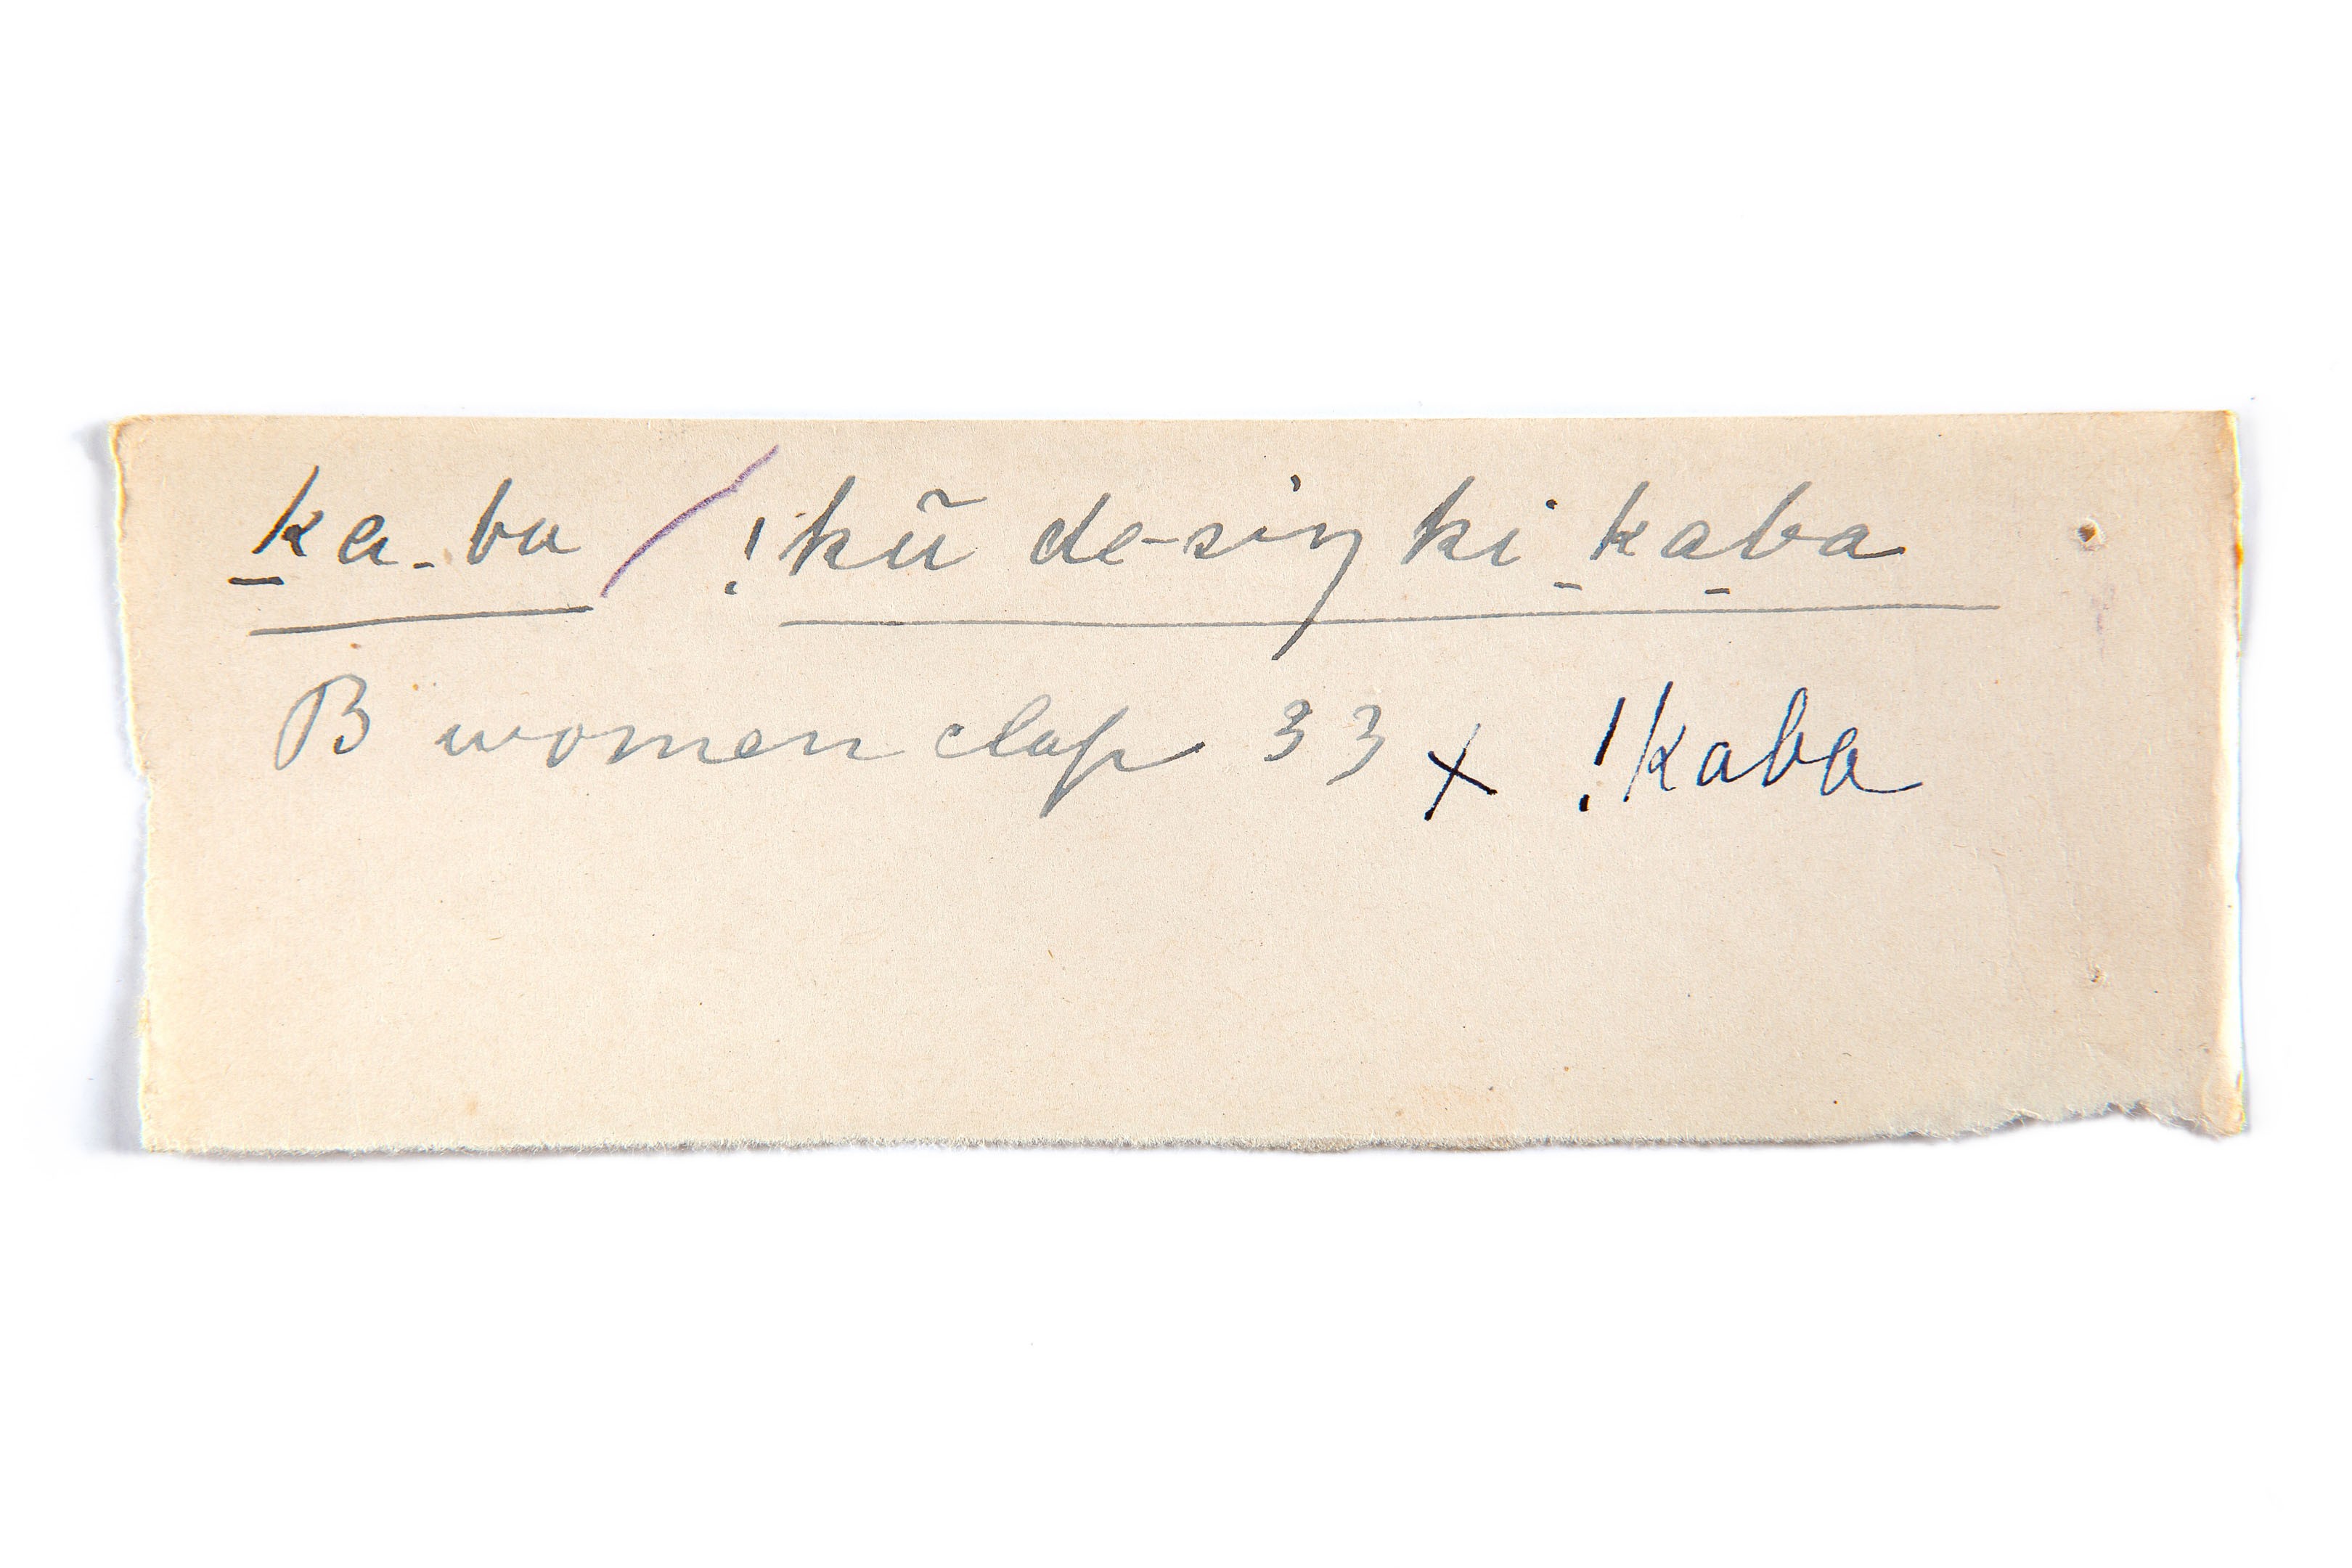 ka_ba / !kũ de-siŋ ki _ka_ba
B women clap 33 x !kaba